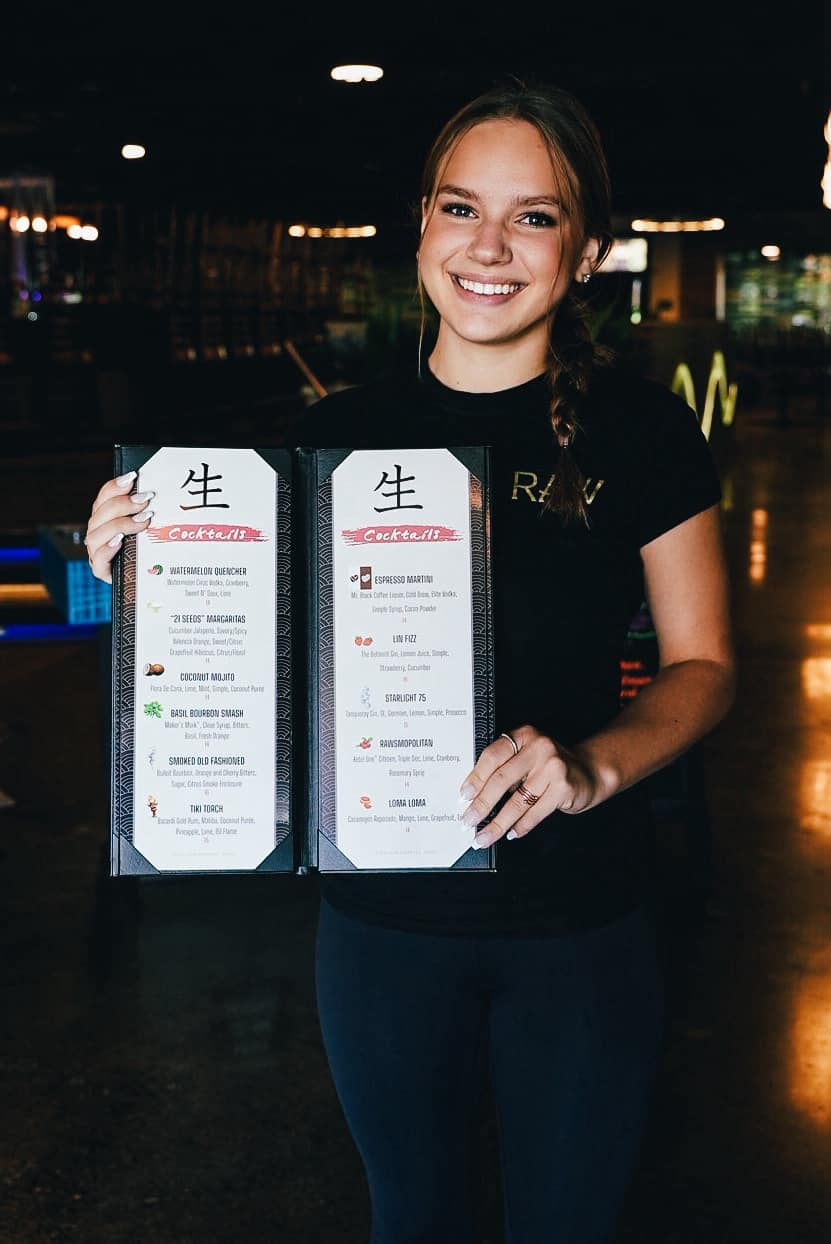 生
Cocktails
WATERMELON QUENCHER
Watermelon Ciroc Vodka, Cranberry,
Sweet N' Sour, Lime
"21 SEEDS" MARGARITAS
Cucumber Jalapeno, Savory/Spicy
Valencia Orange, Sweet/Citrus
Grapefruit Hibiscus, Citrus/Floral
14
COCONUT MOJITO
Flora De Cana, Lime, Mint, Simple, Coconut Puree
14
BASIL BOURBON SMASH
Maker's Mark, Clove Syrup, Bitters,
Basil, Fresh Orange
14
SMOKED OLD FASHIONED
Bulleit Bourbon, Orange and Cherry Bitters,
Sugar, Citrus Smoke Enclosure
TIKI TORCH
Bacardi Gold Rum, Malibu, Coconut Purée,
Pineapple, Lime, 151 Flame
15
生
Cocktails
ESPRESSO MARTINI
Mr. Black Coffee Liquor, Cold Brew, Elite Vodka,
Simple Syrup, Cocoa Powder
LIN FIZZ
The Botanist Gin, Lemon Juice, Simple,
Strawberry, Cucumber
STARLIGHT 75
Tanqueray Gin, St. Germain, Lemon, Simple, Prosecco
RAWSMOPOLITAN
Ketel One Citroen, Triple Sec, Lime, Cranberry,
Rosemary Sprig
14
LOMA LOMA
Casamigos Reposado, Mango, Lime, Grapefruit,
14
RAW